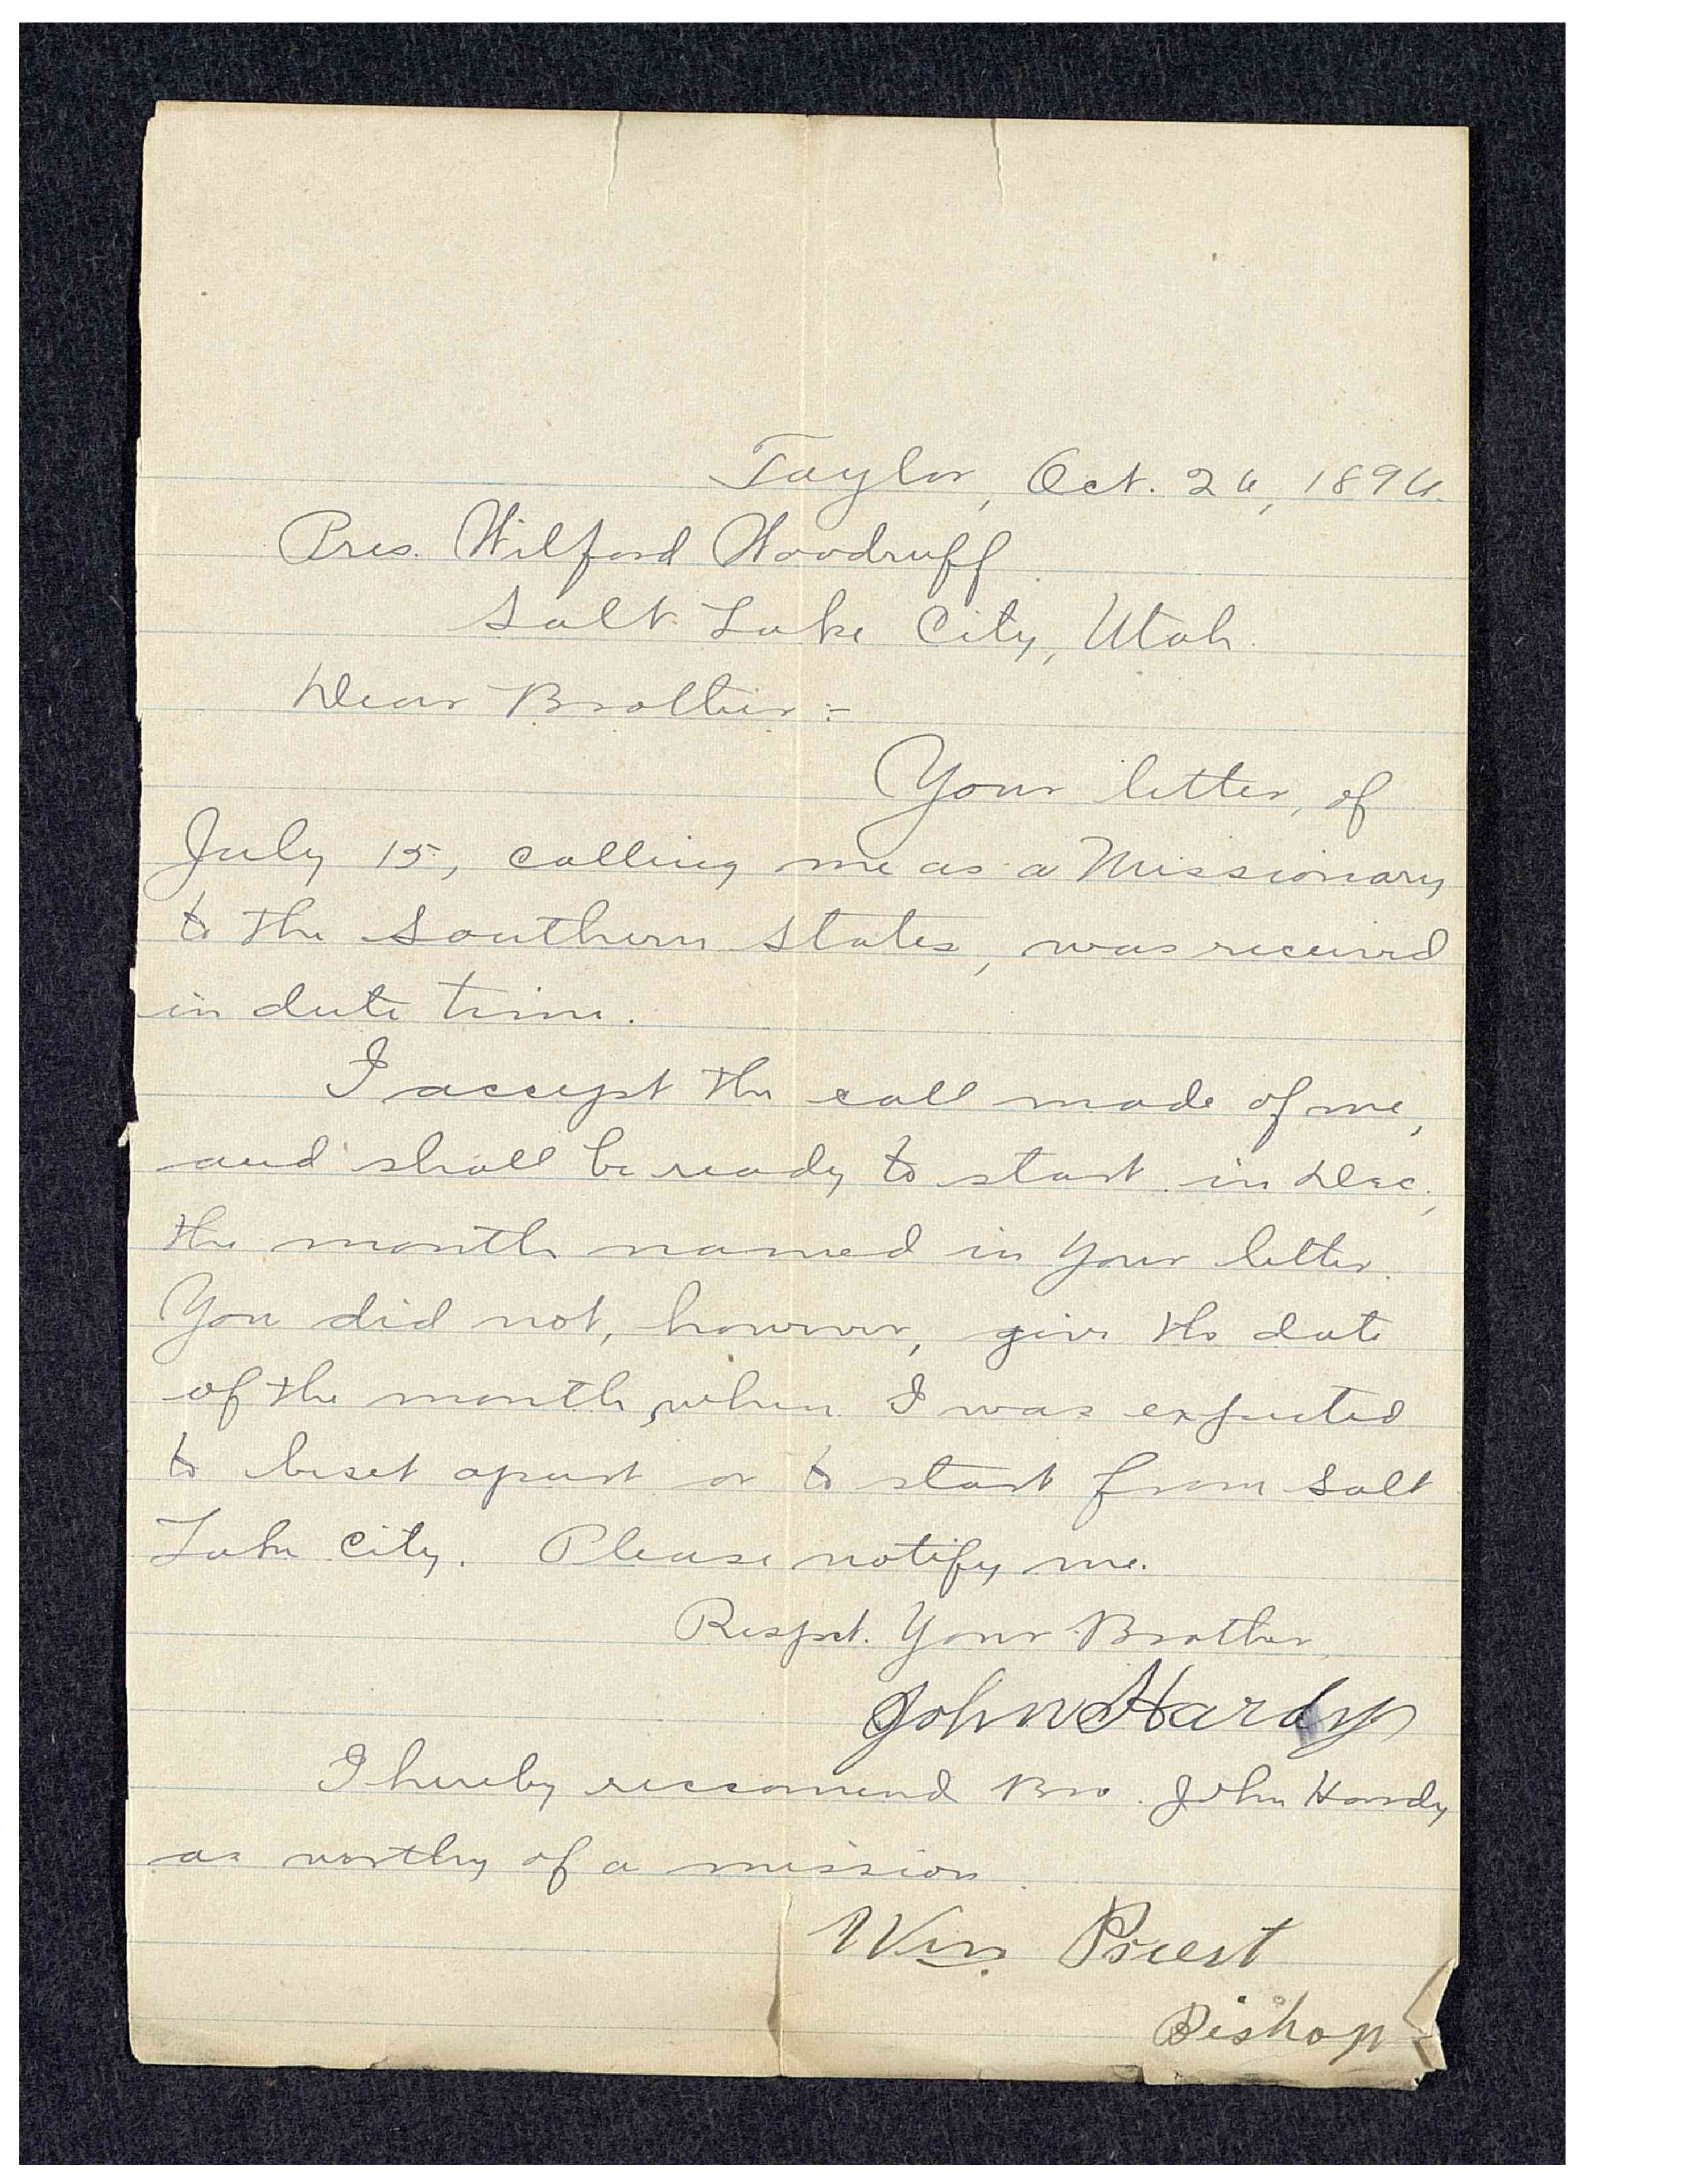 Taylor, Oct. 26, 1896.
Pres. Wilford Woodruff.
Salt Lake City, Utah.
Dear Brother:-
Your letter, of
July 15, calling me as a Missionary
to the Southern States, was received
in dute time.
I accept the call made of me,
and shall be ready to start in Dec.,
the month named in your letter.
You did not, however, give the date
of the month, when I was expected
to be set apart or to start from Salt
Lake City. Please notify me.
Respct. Your Brother,
John Hardy
I hereby reccomend Bro. John Hardy
as worthy of a mission.
Wm. Priest
Bishop